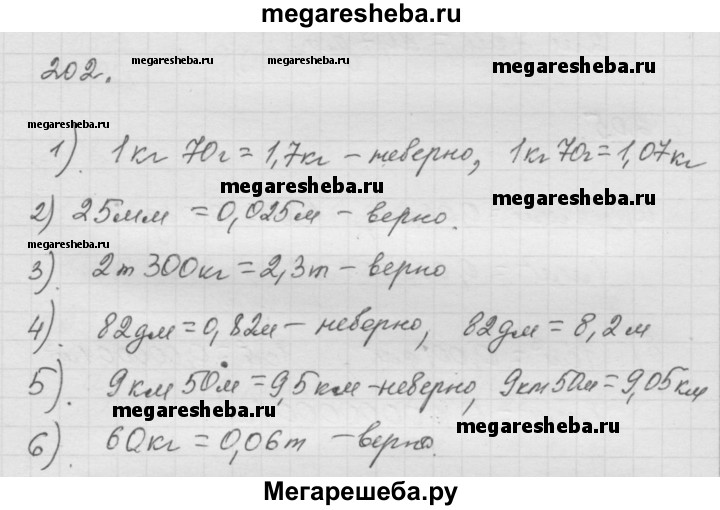 megaresheba.ru
202. megaresheba.ru megaresheba.ru megaresheba.ru
megaresheba.ru
1). 1кг 70г = 1,7кг – неверно, 1кг 70г = 1,07кг
megaresheba.ru megaresheba.ru
2) 25мм = 0,025м – верно.
megaresheba.ru
3). 2т 300кг = 2,3т – верно
4). 82дм = 0,82м – неверно, 82дм = 8,2м
5). 9км 50м = 9,5км – неверно, 9км 50м = 9,05км
megaresheba.ru megaresheba.ru
6). 60кг = 0,06т – верно.
Мегарешеба.ру